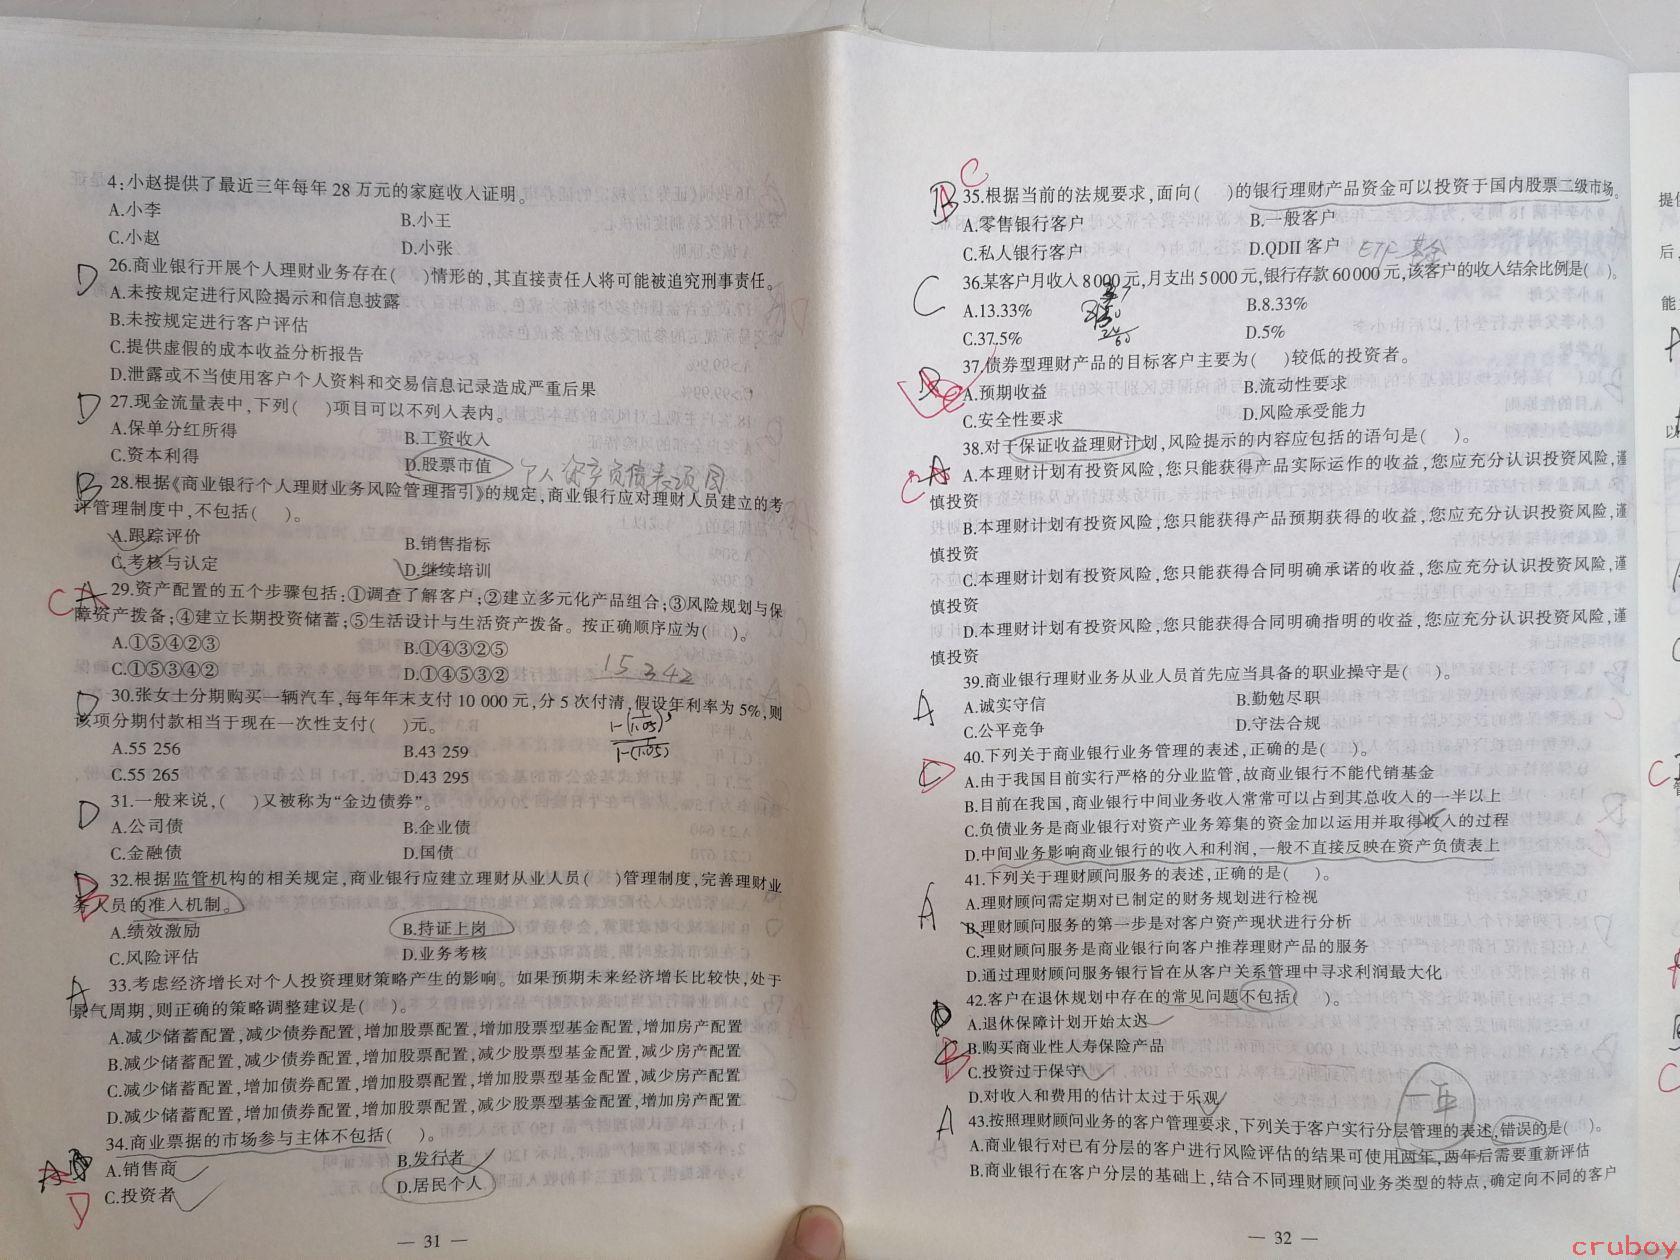 4:小赵提供了最近三年每年28万元的家庭收入证明。
A.小李 B.小王
C.小赵 D.小张
D 26.商业银行开展个人理财业务存在( )情形的,其直接责任人将可能被追究刑事责任。
A.未按规定进行风险揭示和信息披露
B.未按规定进行客户评估
C.提供虚假的成本收益分析报告
D.泄露或不当使用客户个人资料和交易信息记录造成严重后果
D 27.现金流量表中,下列( )项目可以不列入表内。
A.保单分红所得 B.工资收入
C.资本利得 D.股票市值 个人资产负债表项目
B 28.根据《商业银行个人理财业务风险管理指引》的规定,商业银行应对理财人员建立的考
评管理制度中,不包括( )。
A.跟踪评价 B.销售指标
C.考核与认定 D.继续培训
C A 29.资产配置的五个步骤包括:①调查了解客户;②建立多元化产品组合;③风险规划与保
障资产拨备;④建立长期投资储蓄;⑤生活设计与生活资产拨备。按正确顺序应为( )。
A.①⑤④②③ B.①④③②⑤
C.①⑤③④② D.①④⑤③② 15342
D 30.张女士分期购买一辆汽车,每年年末支付10 000元,分5次付清,假设年利率为5%,则
该项分期付款相当于现在一次性支付( )元。
A.55 256 B.43 259
C.55 265 D.43 295
D 31.一般来说,( )又被称为“金边债券”。
A.公司债 B.企业债
C.金融债 D.国债
B 32.根据监管机构的相关规定,商业银行应建立理财从业人员( )管理制度,完善理财业
务人员的准入机制。
A.绩效激励 B.持证上岗
C.风险评估 D.业务考核
A 33.考虑经济增长对个人投资理财策略产生的影响。如果预期未来经济增长比较快,处于
景气周期,则正确的策略调整建议是( )。
A.减少储蓄配置,减少债券配置,增加股票配置,增加股票型基金配置,增加房产配置
B.减少储蓄配置,减少债券配置,增加股票配置,减少股票型基金配置,减少房产配置
C.减少储蓄配置,增加债券配置,增加股票配置,增加股票型基金配置,减少房产配置
D.减少储蓄配置,增加债券配置,增加股票配置,减少股票型基金配置,增加房产配置
34.商业票据的市场参与主体不包括( )。
A A.销售商 B.发行者
D C.投资者 D.居民个人
— 31 —
C
B 35.根据当前的法规要求,面向( )的银行理财产品资金可以投资于国内股票二级市场。
A.零售银行客户 B.一般客户
C.私人银行客户 D.QDII客户 ETF基金
C 36.某客户月收入8 000元,月支出5 000元,银行存款60 000元,该客户的收入结余比例是( )。
A.13.33% B.8.33%
C.37.5% D.5%
37.债券型理财产品的目标客户主要为( )较低的投资者。
A.预期收益 B.流动性要求
C.安全性要求 D.风险承受能力
38.对于保证收益理财计划,风险提示的内容应包括的语句是( )。
C A A.本理财计划有投资风险,您只能获得产品实际运作的收益,您应充分认识投资风险,谨
慎投资
B.本理财计划有投资风险,您只能获得产品预期获得的收益,您应充分认识投资风险,谨
慎投资
C.本理财计划有投资风险,您只能获得合同明确承诺的收益,您应充分认识投资风险,谨
慎投资
D.本理财计划有投资风险,您只能获得合同明确指明的收益,您应充分认识投资风险,谨
慎投资
39.商业银行理财业务从业人员首先应当具备的职业操守是( )。
A A.诚实守信 B.勤勉尽职
C.公平竞争 D.守法合规
40.下列关于商业银行业务管理的表述,正确的是( )。
A.由于我国目前实行严格的分业监管,故商业银行不能代销基金
B.目前在我国,商业银行中间业务收入常常可以占到其总收入的一半以上
C.负债业务是商业银行对资产业务筹集的资金加以运用并取得收入的过程
D.中间业务影响商业银行的收入和利润,一般不直接反映在资产负债表上
41.下列关于理财顾问服务的表述,正确的是( )。
A A.理财顾问需定期对已制定的财务规划进行检视
B.理财顾问服务的第一步是对客户资产现状进行分析
C.理财顾问服务是商业银行向客户推荐理财产品的服务
D.通过理财顾问服务银行旨在从客户关系管理中寻求利润最大化
42.客户在退休规划中存在的常见问题不包括( )。
A.退休保障计划开始太迟
B B.购买商业性人寿保险产品
C.投资过于保守
D.对收入和费用的估计太过于乐观
一年
A 43.按照理财顾问业务的客户管理要求,下列关于客户实行分层管理的表述,错误的是( )。
A.商业银行对已有分层的客户进行风险评估的结果可使用两年,两年后需要重新评估
B.商业银行在客户分层的基础上,结合不同理财顾问业务类型的特点,确定向不同的客户
— 32 —
cruboy